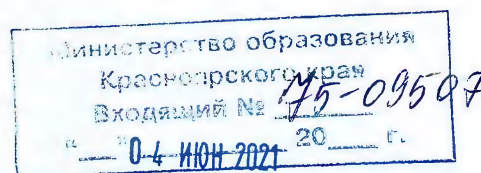 Министерство образования
Красноярского края
Входящий № 75-09507
"__" 04 ИЮН 2021 20 г.